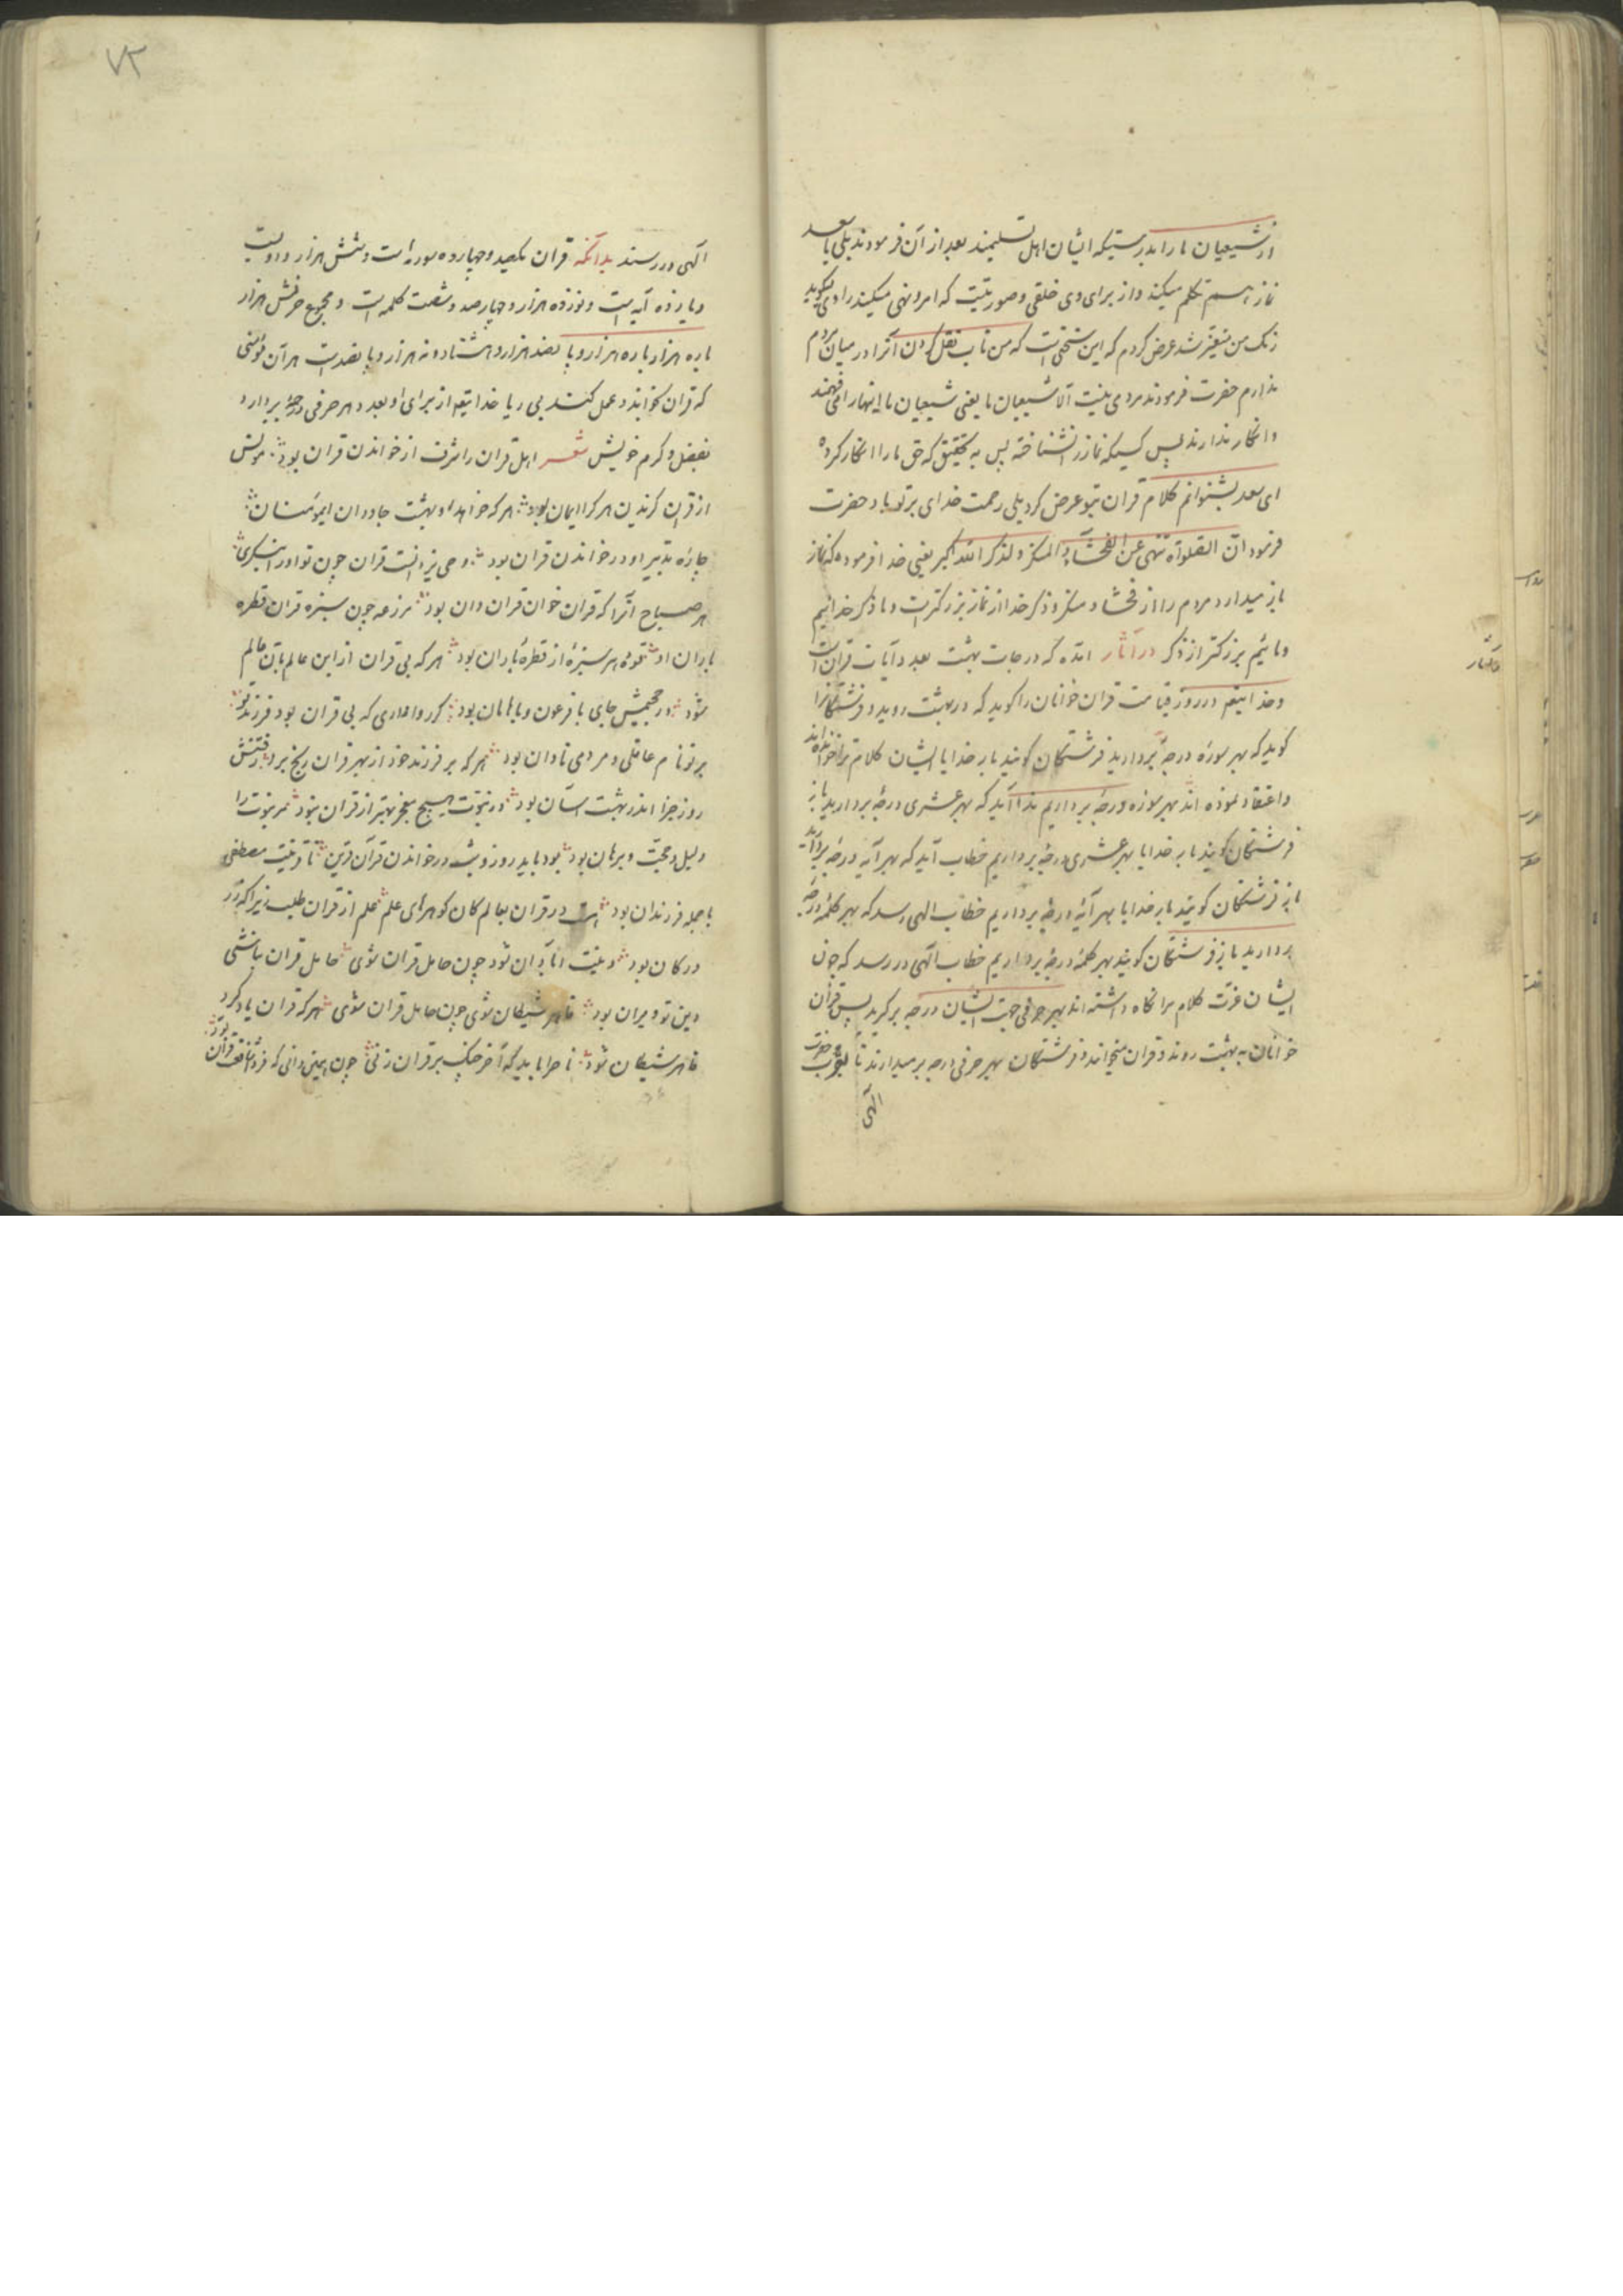 از شیعیان ما را بدرستیکه ایشان اهل تسلیمند بعد از آن فرمودند بلی یا سعد
نماز هم تکلم میکند و از برای وی خلقی و صورتیست که امر و نهی میکند راوی میگوید
رنگ من متغیر شد عرض کردم که این سخنی است که من تاب نقل کردن آنرا در میان مردم
ندارم حضرت فرمودند مردمی نیست الا شیعیان ما یعنی شیعیان ما اینها را می فهمند
و انکار ندارند پس کسیکه نماز را نشناخته پس به تحقیق که حق ما را انکار کرده
ای سعد بشنوانم کلام قرآن بتو عرض کرد بلی رحمت خدای بر تو باد حضرت
فرمود ان الصلوة تنهی عن الفحشاء و المنکر و لذکر الله اکبر یعنی خدا فرموده که نماز
باز میدارد مردم را از فحشا و منکر و ذکر خدا از نماز بزرکتر است و ما ذکر خدائیم
و مائیم بزرکتر از ذکر در آثار آمده که درجات بهشت بعدد آیات قرآن است
و خدایتعم در روز قیامت قرآن خوانان را کوید که در بهشت روید و فرشتگانرا
کوید که بهر سوره درجهٔ بردارید فرشتگان کویند بار خدایا ایشان کلام ترا خوانده اند
و اعتقاد نموده اند بهر سوره درجهٔ برداریم ندا آید که بهر عشری درجهٔ بردارید باز
فرشتگان کویند بار خدایا بهر عشری درجهٔ برداریم خطاب آید که بهر آیه درجهٔ بردارید
باز فرشتگان کویند بار خدایا بهر آیهٔ درجهٔ برداریم خطاب الهی رسد که بهر کلمهٔ درجهٔ
بردارید باز فرشتگان کویند بهر کلمهٔ درجهٔ برداریم خطاب الهی در رسد که چون
ایشان عزت کلام مرا نگاه داشته اند بهر حرفی جهت ایشان درجه بر کیرید پس قرآن
خوانان به بهشت روند و قرآن میخوانند و فرشتگان بهر حرفی درجه بر میدارند تا بقرب حضرت
الهی
۷۳
الهی در رسند بدانکه قرآن یکصد و چهارده سوره است و شش هزار و دویست
و یازده آیه است و نوزده هزار و چهارصد و شصت کلمه است و مجموع حرفش هزار
باره هزار باره هزار و پانصد هزار و هشتاد و نه هزار و پانصد است هر آن مؤمنی
که قرآن بخواند و عمل کند بی ریا خدایتعم از برای او بعدد هر حرفی درجهٔ بردارد
بفضل و کرم خویش شعر اهل قرآن را شرف از خواندن قرآن بود مونس
از قرآن کزیدن هر کرا ایمان بود هر که خواهد او بهشت جاودان ای مؤمنان
چارهٔ تدبیر او در خواندن قرآن بود وحی یزدانست قرآن چون تو او را بنکری
هر صباح آنرا که قرآن خوان قرآن دان بود مزرعه چون سبزه قرآن قطره
باران او قوت هر سبزهٔ از قطرهٔ باران بود هر که بی قرآن ازاین عالم بآن عالم
شود در جحیمش جای با فرعون و با هامان بود کر روا داری که بی قرآن بود فرزند تو
بر تو نام عاقلی و مردمی تاوان بود هر که بر فرزند خود از بهر قرآن رنج برد رفتنش
روز جزا اندر بهشت آسان بود در نبوت هیچ معجز بهتر از قرآن نبود مر نبوت را
دلیل و حجت و برهان بود بود باید روز و شب در خواندن قرآن قرین تا قرینت مصطفی
با جمله فرزندان بود هست در قرآن بعالم کان کوهرهای علم علم از قرآن طلب زیرا که در
در کان بود دینت آبادان شود چون حامل قرآن شوی حامل قرآن باشی
دین تو ویران بود قاهر شیطان شوی چون حامل قرآن شوی هر که قرآن یاد کرد
قاهر شیطان شود